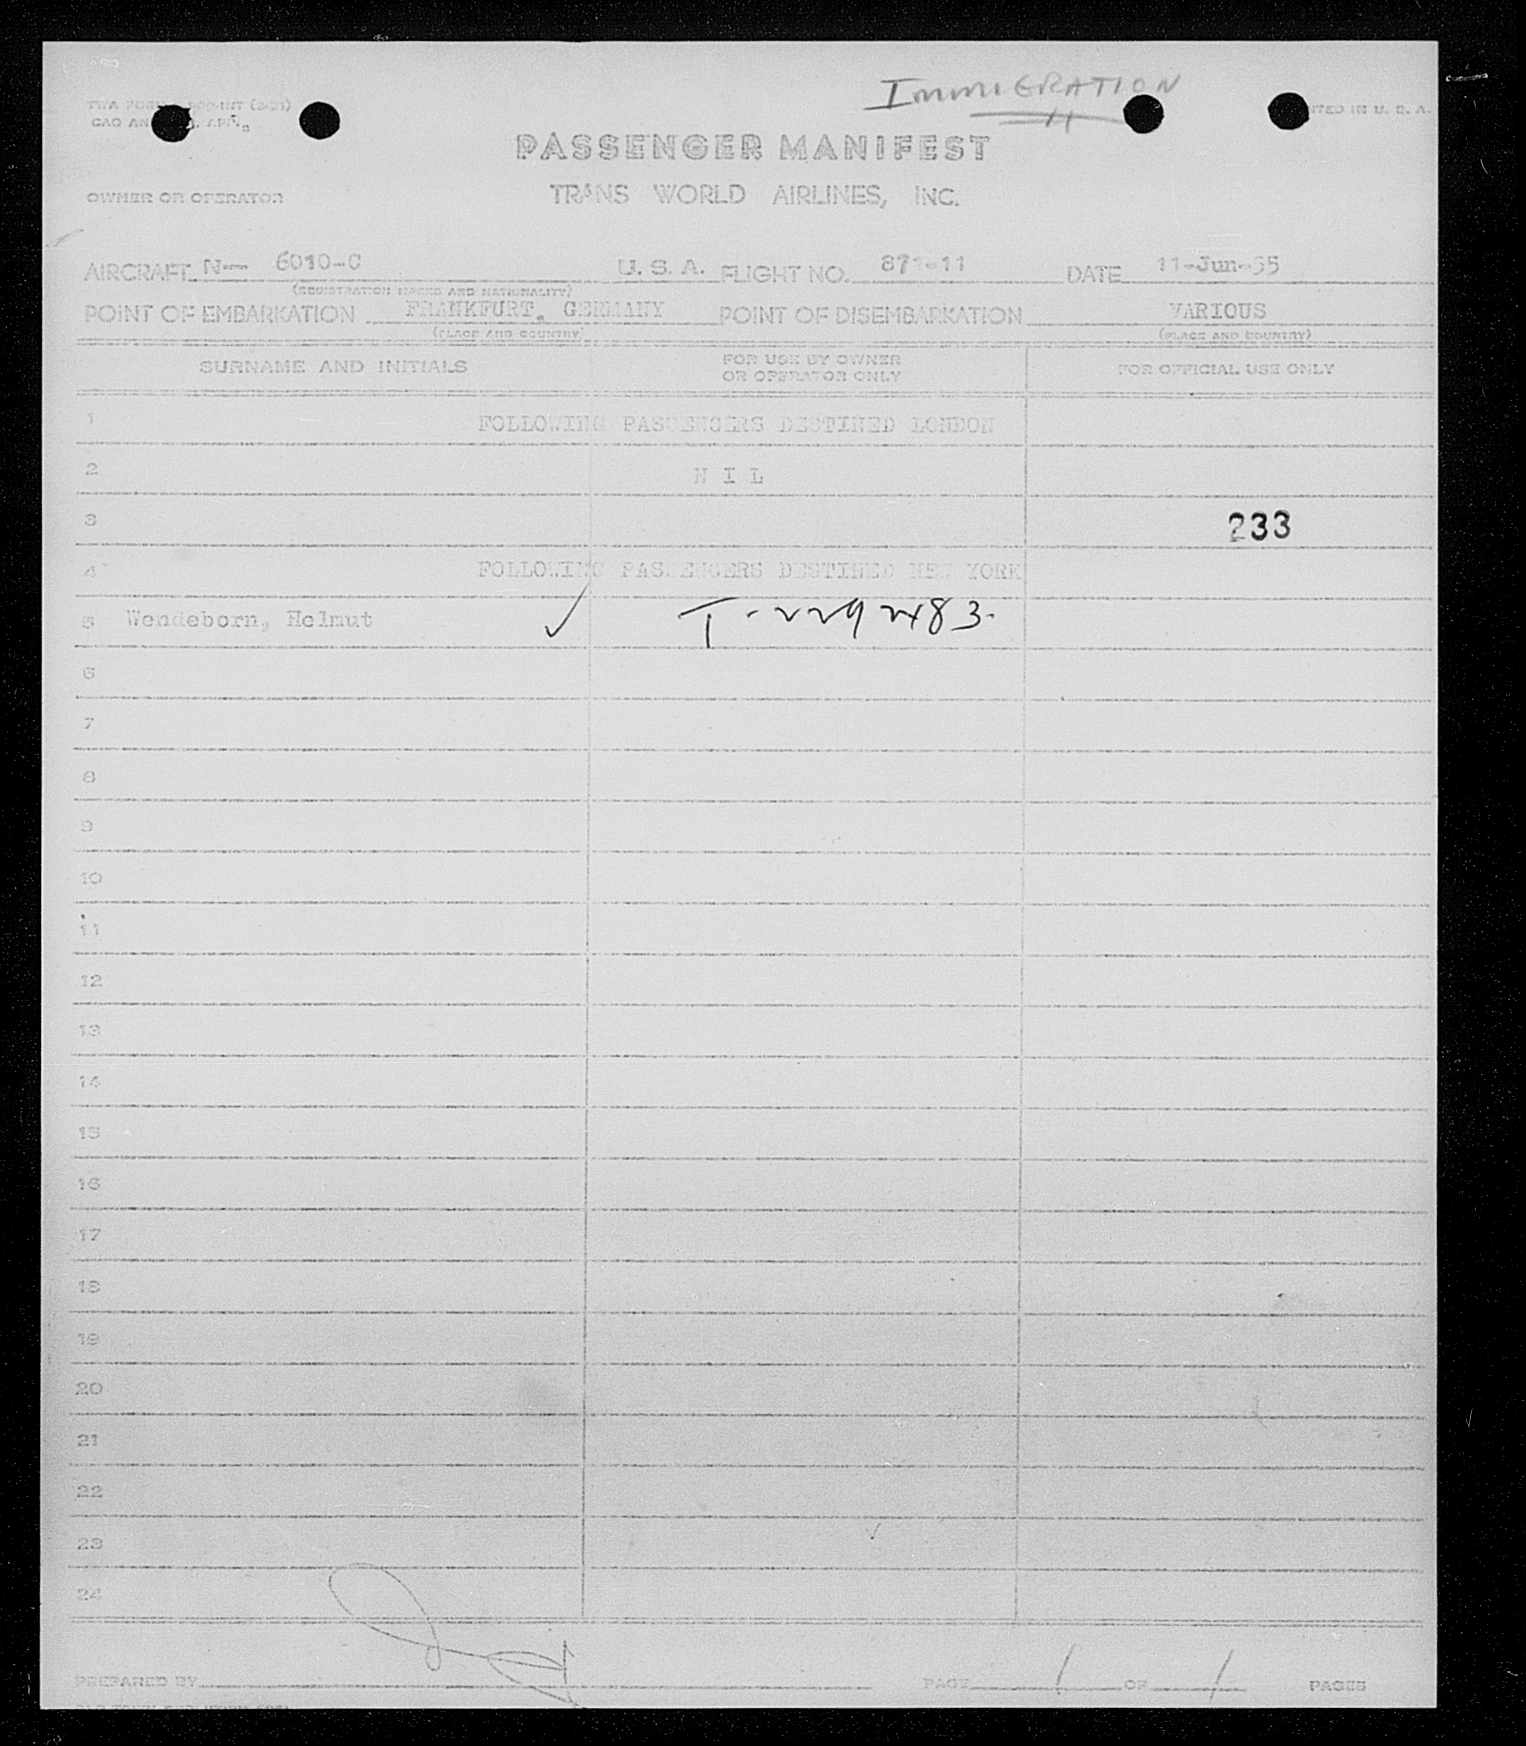 IMMIGRATION
PRINTED IN U. S. A.
PASSENGER MANIFEST
OWNER OR OPERATOR TRANS WORLD AIRLINES, INC.
AIRCRAFT N— 6010-C U. S. A. FLIGHT NO. 871-11 DATE 11-Jun-55
(REGISTRATION MARKS AND NATIONALITY)
POINT OF EMBARKATION FRANKFURT, GERMANY POINT OF DISEMBARKATION VARIOUS
(PLACE AND COUNTRY) (PLACE AND COUNTRY)
SURNAME AND INITIALS FOR USE BY OWNER OR OPERATOR ONLY FOR OFFICIAL USE ONLY
1 FOLLOWING PASSENGERS DESTINED LONDON
2 N I L
3 233
4 FOLLOWING PASSENGERS DESTINED NEW YORK
5 Wendeborn, Helmut ✓ T-229483.
6
7
8
9
10
11
12
13
14
15
16
17
18
19
20
21
22
23
24
PREPARED BY PAGE 1 OF 1 PAGES